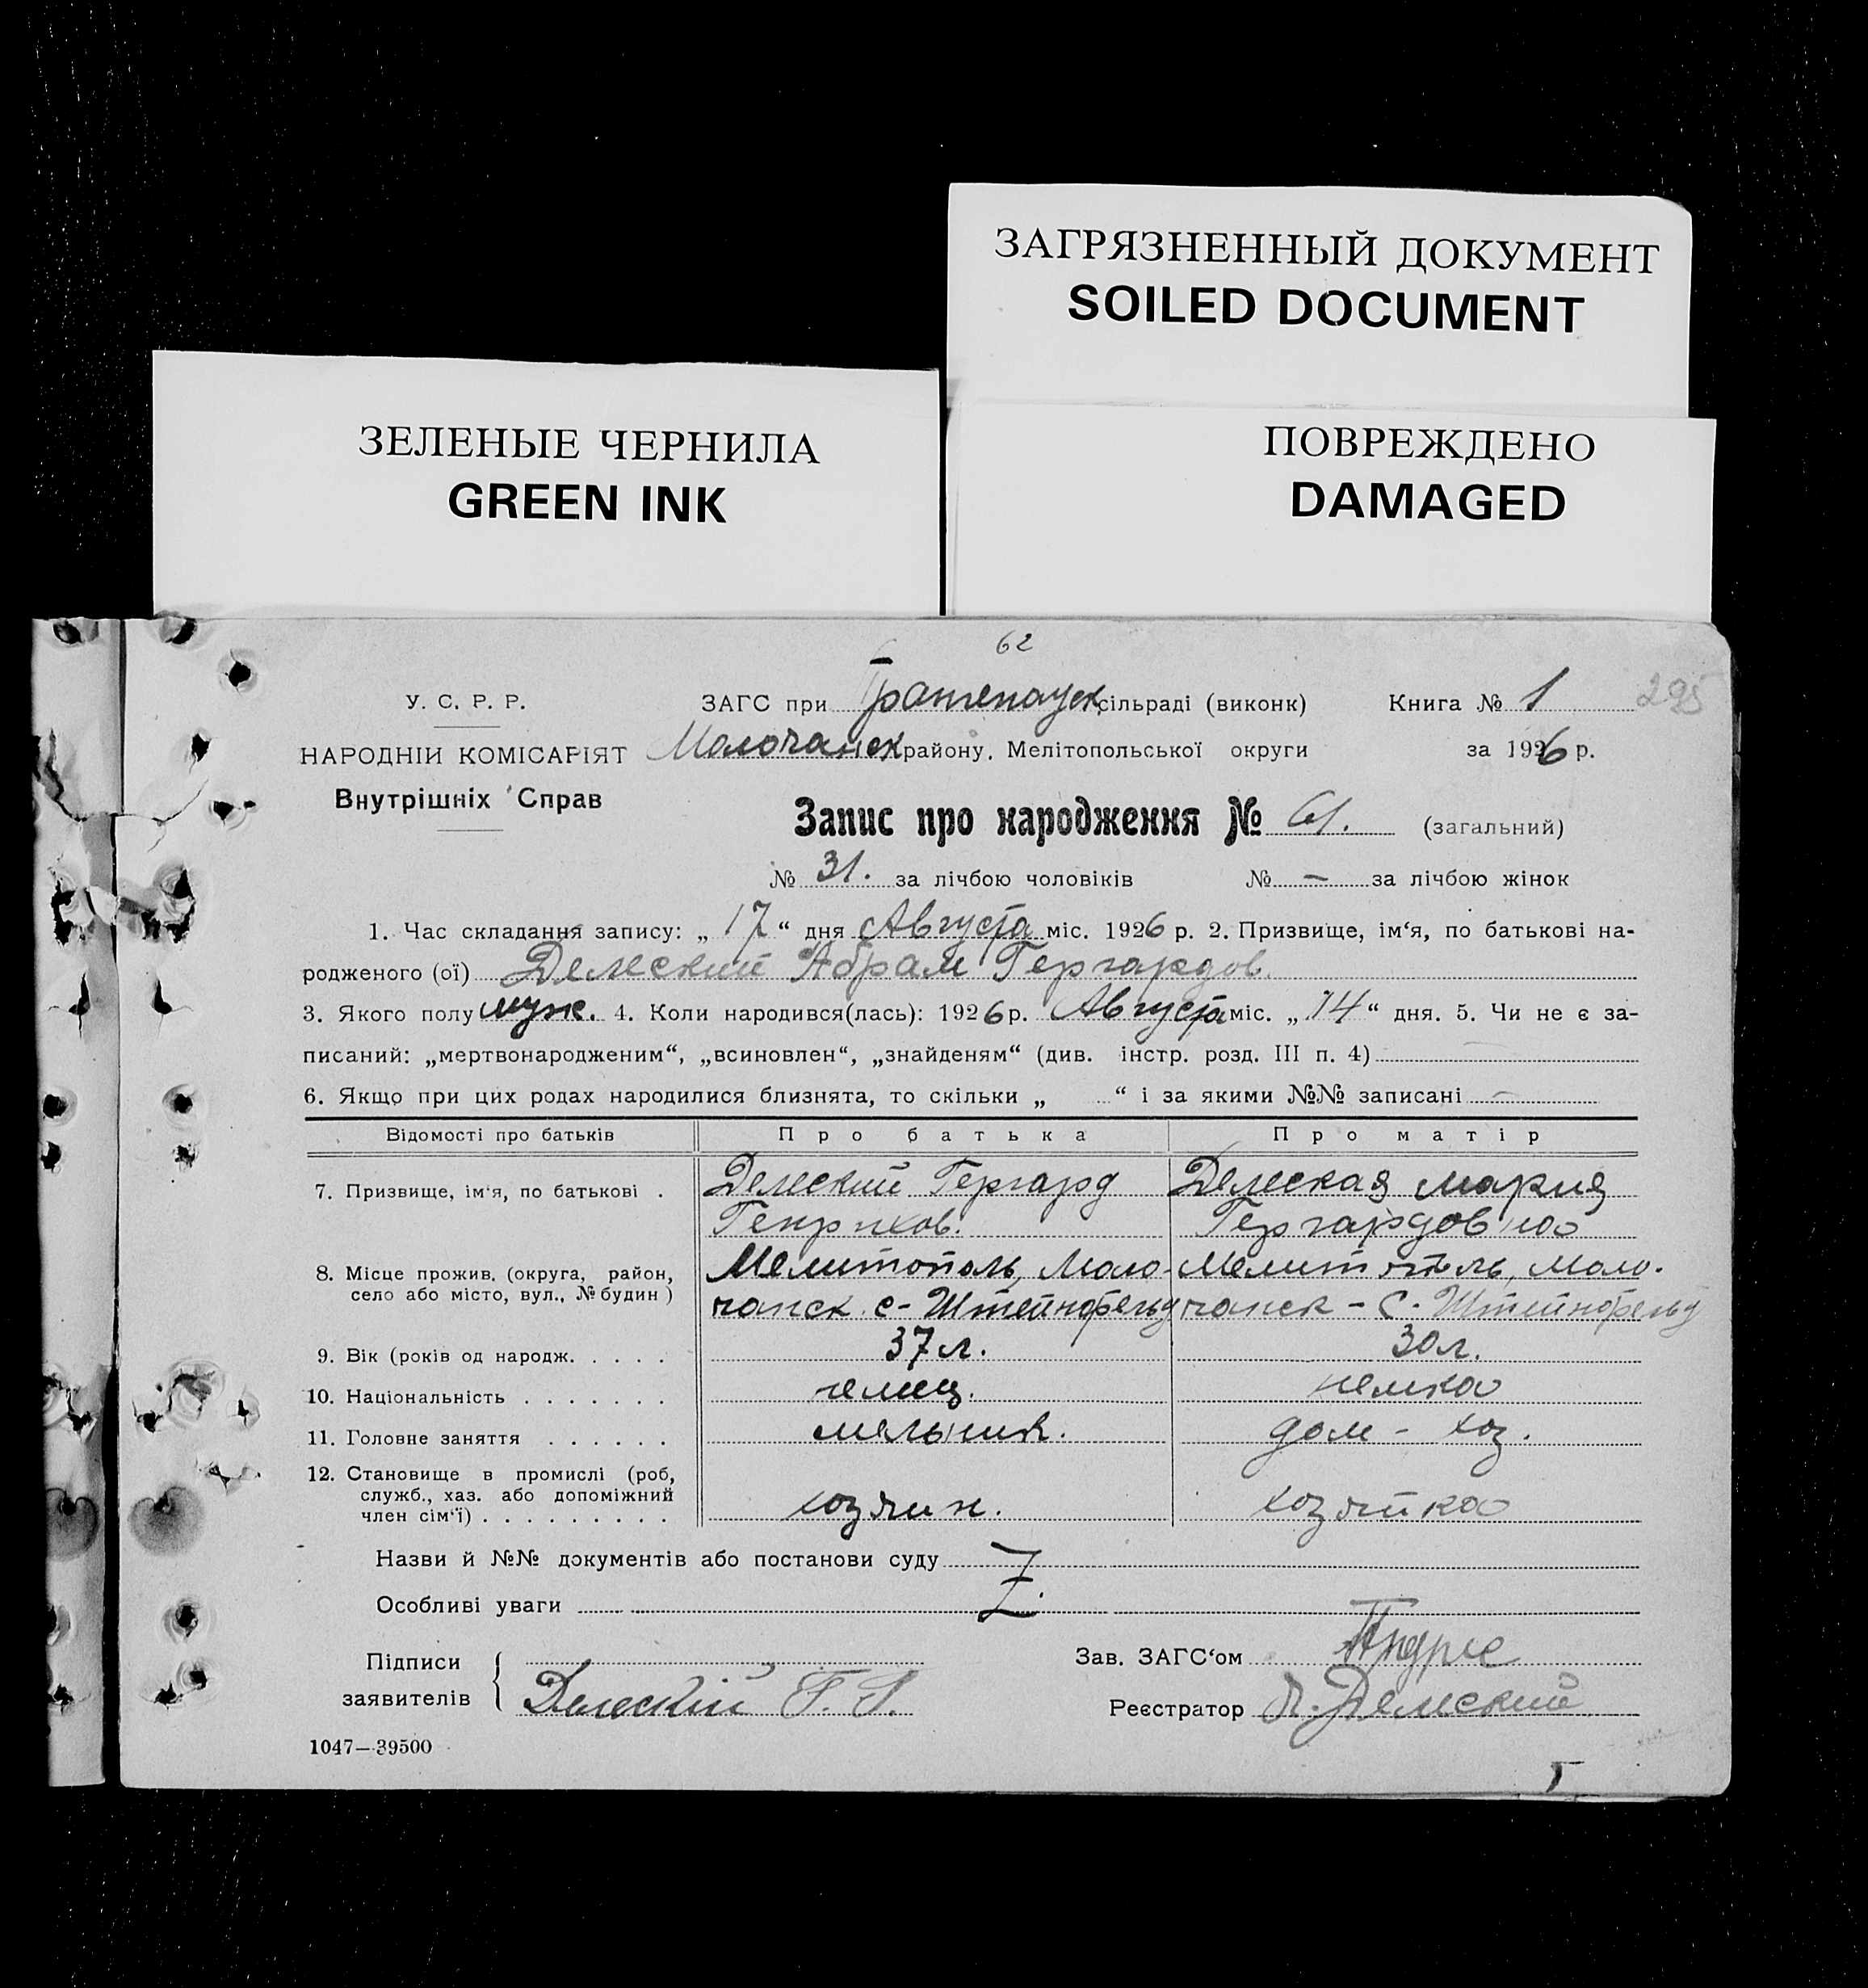 ЗАГРЯЗНЕННЫЙ ДОКУМЕНТ
SOILED DOCUMENT
ЗЕЛЕНЫЕ ЧЕРНИЛА
GREEN INK
ПОВРЕЖДЕНО
DAMAGED
62
У. С. Р. Р. ЗАГС при сільраді (виконк) Книга № 1 295
НАРОДНІЙ КОМІСАРІЯТ Молочанск району, Мелітопольської округи за 1926 р.
Внутрішніх Справ
Запис про народження № 61. (загальний)
№ 31. за лічбою чоловіків № — за лічбою жінок
1. Час складання запису: „ 17 “ дня Августа міс. 1926 р. 2. Призвище, ім‘я, по батькові на-
родженого (ої) Делеский Абрам Гергардов.
3. Якого полу муж. 4. Коли народився(лась): 1926 р. Августа міс. „ 14 “ дня. 5. Чи не є за-
писаний: „мертвонародженим“, „всиновлен“, „знайденям“ (див. інстр. розд. III п. 4) —
6. Якщо при цих родах народилися близнята, то скільки „ “ і за якими №№ записані —
Відомості про батьків Про батька Про матір
7. Призвище, ім‘я, по батькові . Делеский Гергард Делеская Мария
Генрихов. Гергардовна
8. Місце прожив. (округа, район, Мелитополь, Моло- Мелитополь, Моло-
село або місто, вул., № будин) чанск с- Штейнфельд чанск - с. Штейнфельд
9. Вік (років од народж. . . . . 37 л. 30 л.
10. Національність . . . . . . . немец. немка
11. Головне заняття . . . . . . мельник. дом - хоз.
12. Становище в промислі (роб,
служб., хаз. або допоміжний
член сім‘ї) . . . . . . . . . хозяин. хозяйка
Назви й №№ документів або постанови суду
Особливі уваги
Підписи
заявителів Делеский Г.
Зав. ЗАГС‘ом
Реєстратор Делеский
1047—39500